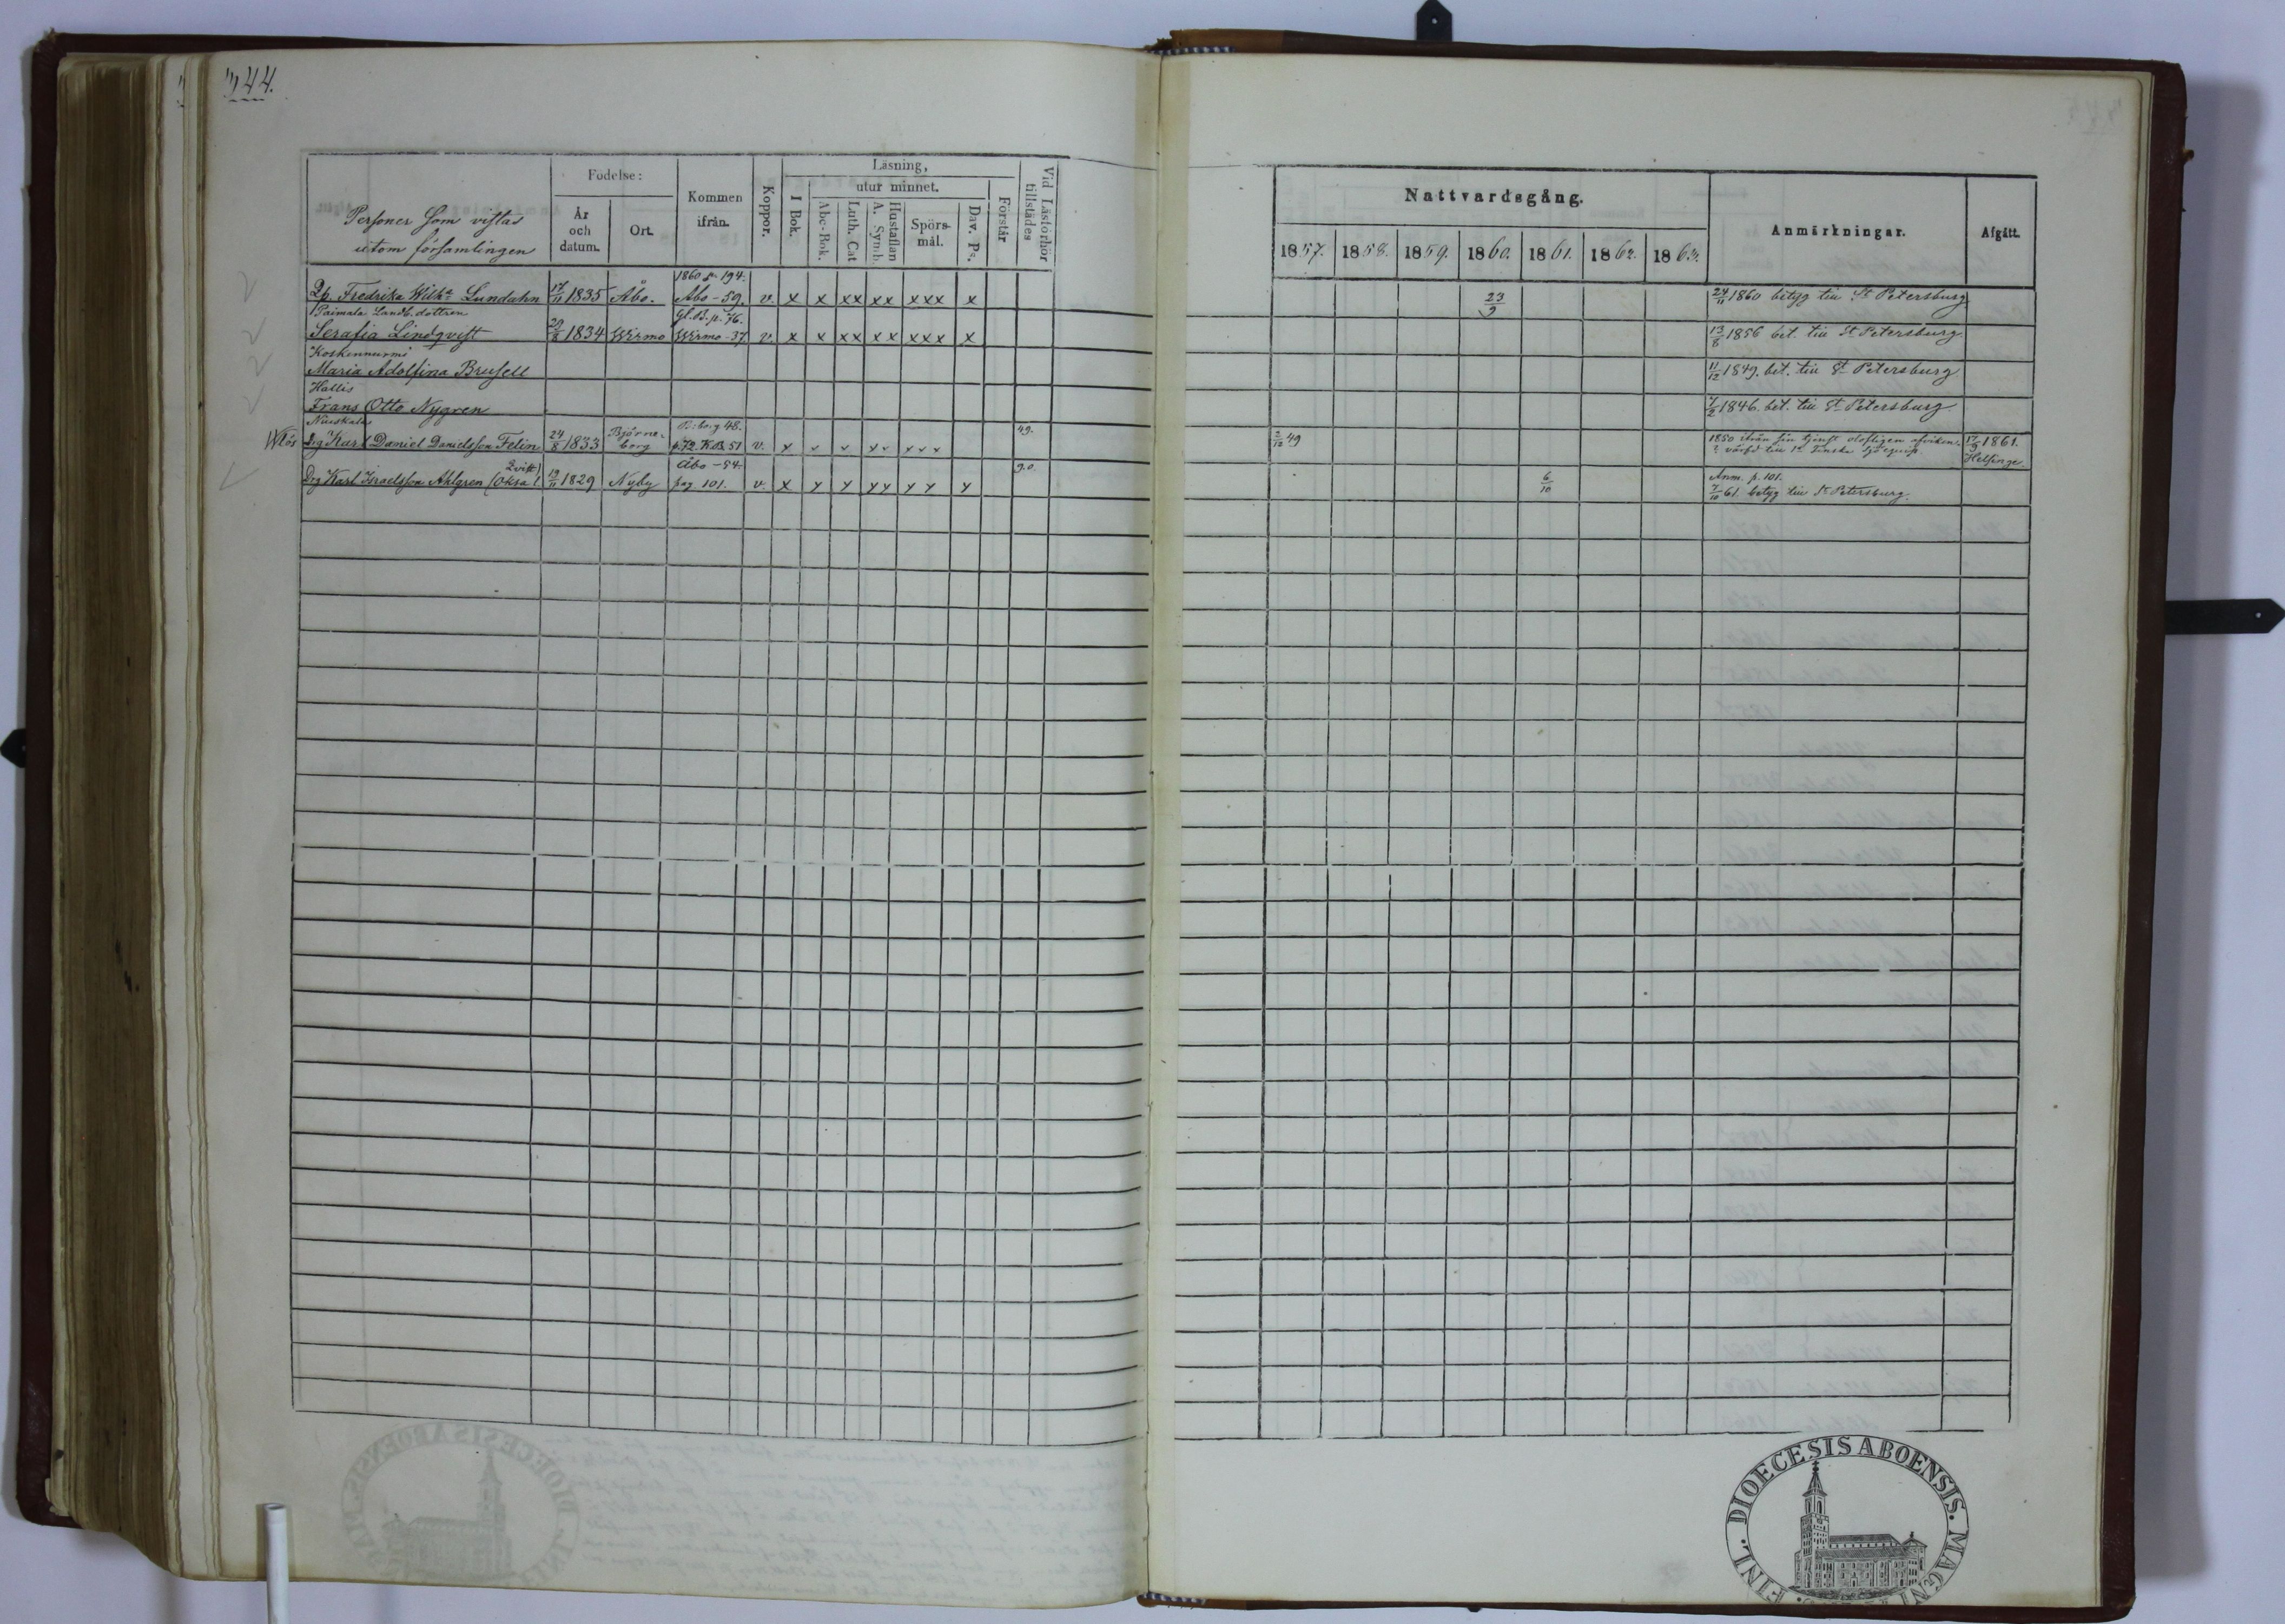 344.
Personer som vistas
utom församlingen
Födelse:
År
och
datum.
Ort.
Kommen
ifrån.
Koppor.
Läsning,
I Bok.
utur minnet.
Abc-Bok.
Luth. Cat
A. Symb.
Hustaflan
Spörs-
mål.
Dav. Ps.
Förstår
Vid Läsförhör
tillstädes
Nattvardsgång.
1857. 1858. 1859. 1860. 1861. 1862. 1863.
Anmärkningar.
Afgått.
1860 p. 194.
Pig. Fredrika Wilh:a Lundahn 17/11 1835 Åbo. Åbo - 59. v. x x xx xx xxx x 23/9 24/11 1860 betyg till St Petersburg
Paimala Landb. dottren Gl. B. p. 76.
Serafia Lindqvist 29/8 1834 Wirmo Wirmo - 37 v. x x xx xx xxx x 13/8 1856 bet. till St Petersburg
Koskennurmi
Maria Adolfina Brusell 11/12 1849. bet. till St Petersburg
Hallis
Frans Otto Nygren 7/2 1846. bet. till St Petersburg
B:borg 48. 49.
Drg Karl Daniel Danielsson Felin 24/8 1833 Björne-
borg p. 72. K.B. 51 v. x v v xx xxx 2/12 49 1850 ifrån sin tjenst olofligen afviken. 17/9 1861.
värfd till 1a Finska Sjöequip. Helsinge.
Qvist) Åbo - 54. 90
Drg Karl Israelsson Ahlgren (Oksa l. 19/11 1829 Nyby pag 101. v. x x x xx x x x 6/10 Anm. p. 101.
7/10 61. betyg till St Petersburg.
DIOECESIS ABOENSIS. MAGNI
FINL.